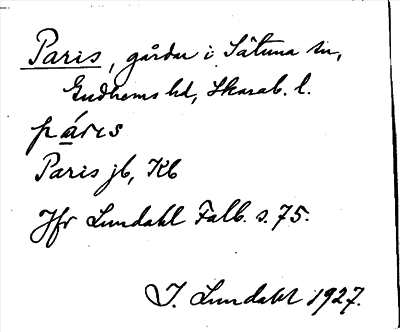 Paris, gårdar i Såtuna sn,
Gudhems hd, Skarab. l.
páris
Paris jb, Kb
Jfr Lundahl Falb. s. 75.
I. Lundahl 1927.